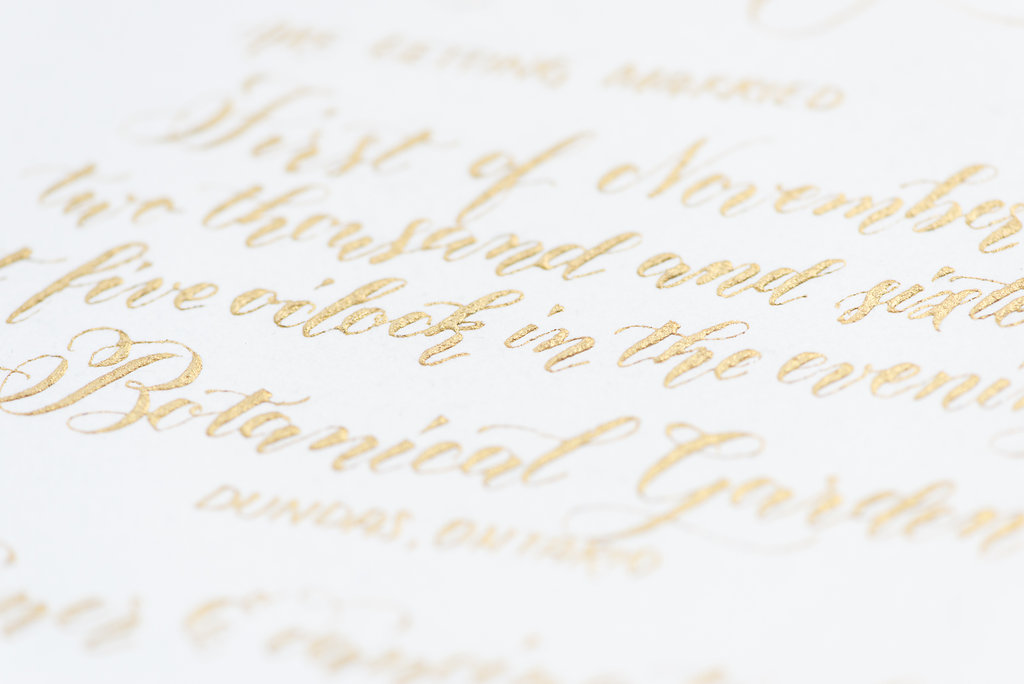 GETTING MARRIED
First of November
two thousand and sixte
t five o'clock in the eveni
Botanical Garden
DUNDAS, ONTARIO